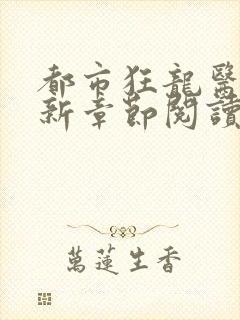 都市狂龍醫
新章節閱讀
萬蓮生香